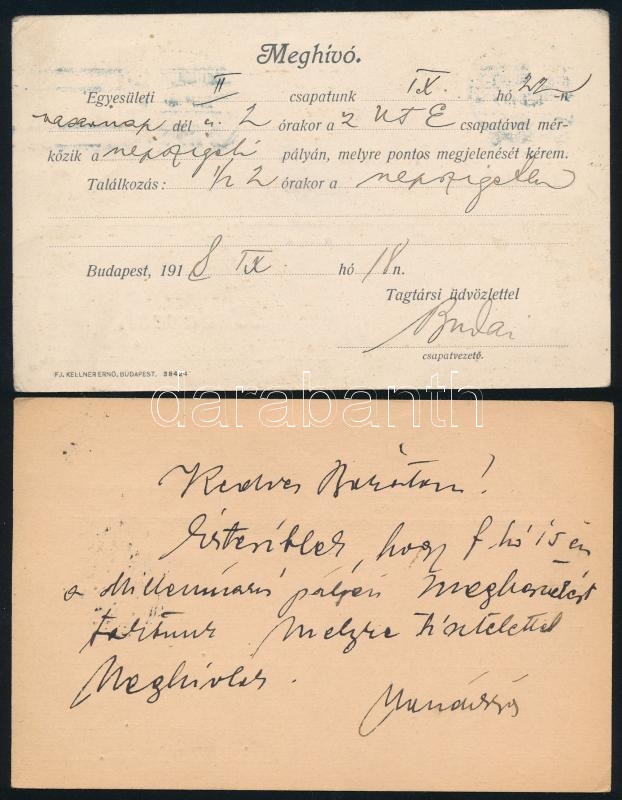 Meghívó.
Egyesületi II csapatunk IX. hó 22-n
vasárnap dél u. 2 órakor a 2 UTE csapatával mér-
kőzik a népszigeti pályán, melyre pontos megjelenését kérem.
Találkozás: 1/2 2 órakor a népszigeten
Budapest, 1918 IX hó 18 n.
Tagtársi üdvözlettel
Budai
csapatvezető.
F.J. KELLNER ERNŐ, BUDAPEST. 38424
darabanth
Kedves Barátom!
Értesitlek, hogy f hó 15 én
a Millenáris pályán Megbeszélést
tartunk Melyre tisztelettel
Meghívlak.